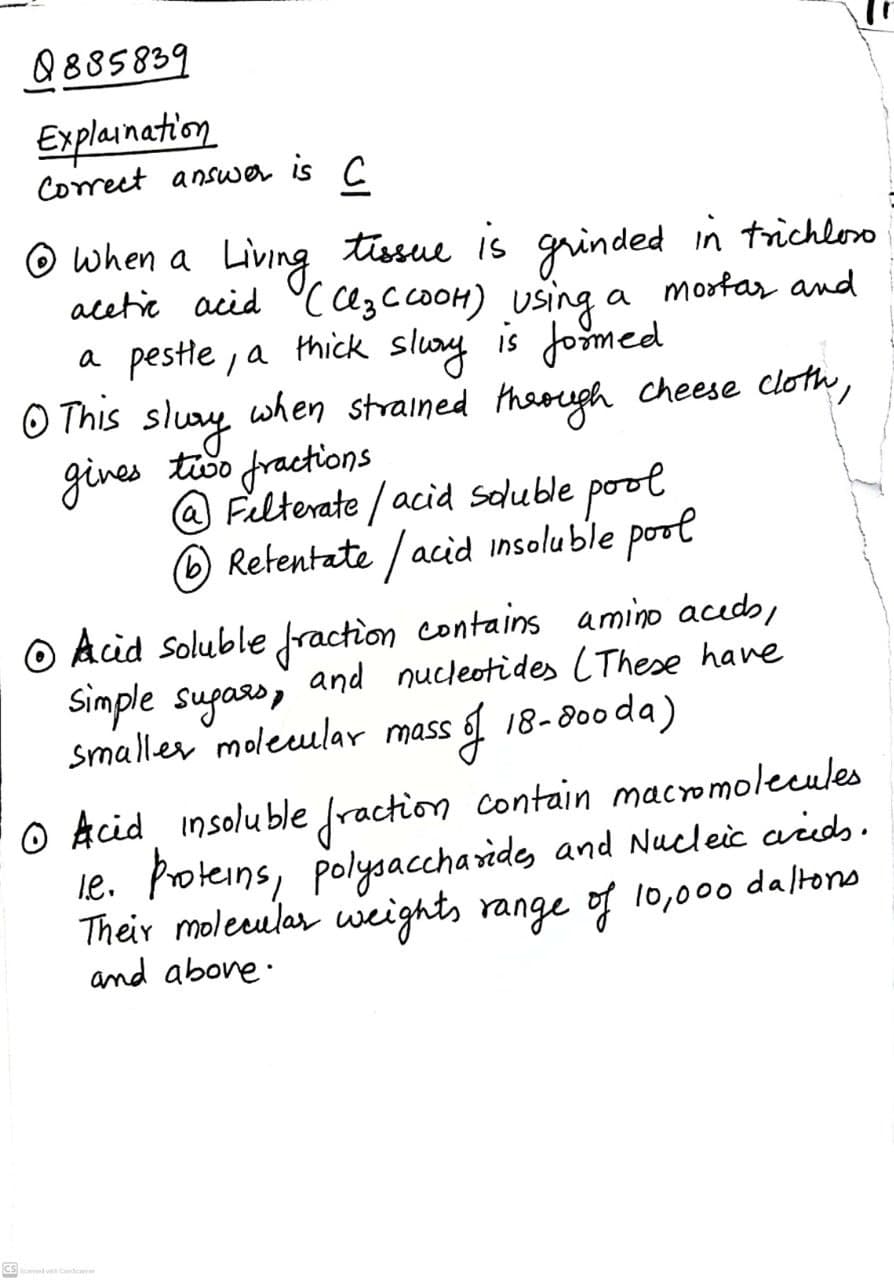 Q885839
Explaination
Correct answer is C
When a Living tissue is grinded in trichloro
acetic acid (Cl3CCOOH) using a mortar and
a pestle, a thick slury is formed
This slury when strained through cheese cloth,
gives two fractions
(a) Filterate / acid soluble pool
(b) Retentate / acid insoluble pool
Acid soluble fraction contains amino acids,
Simple sugars, and nucleotides (These have
smaller molecular mass of 18-800 da)
Acid insoluble fraction contain macromolecules
i.e. Proteins, polysaccharides and Nucleic acids.
Their molecular weights range of 10,000 daltons
and above.
CS Scanned with CamScanner